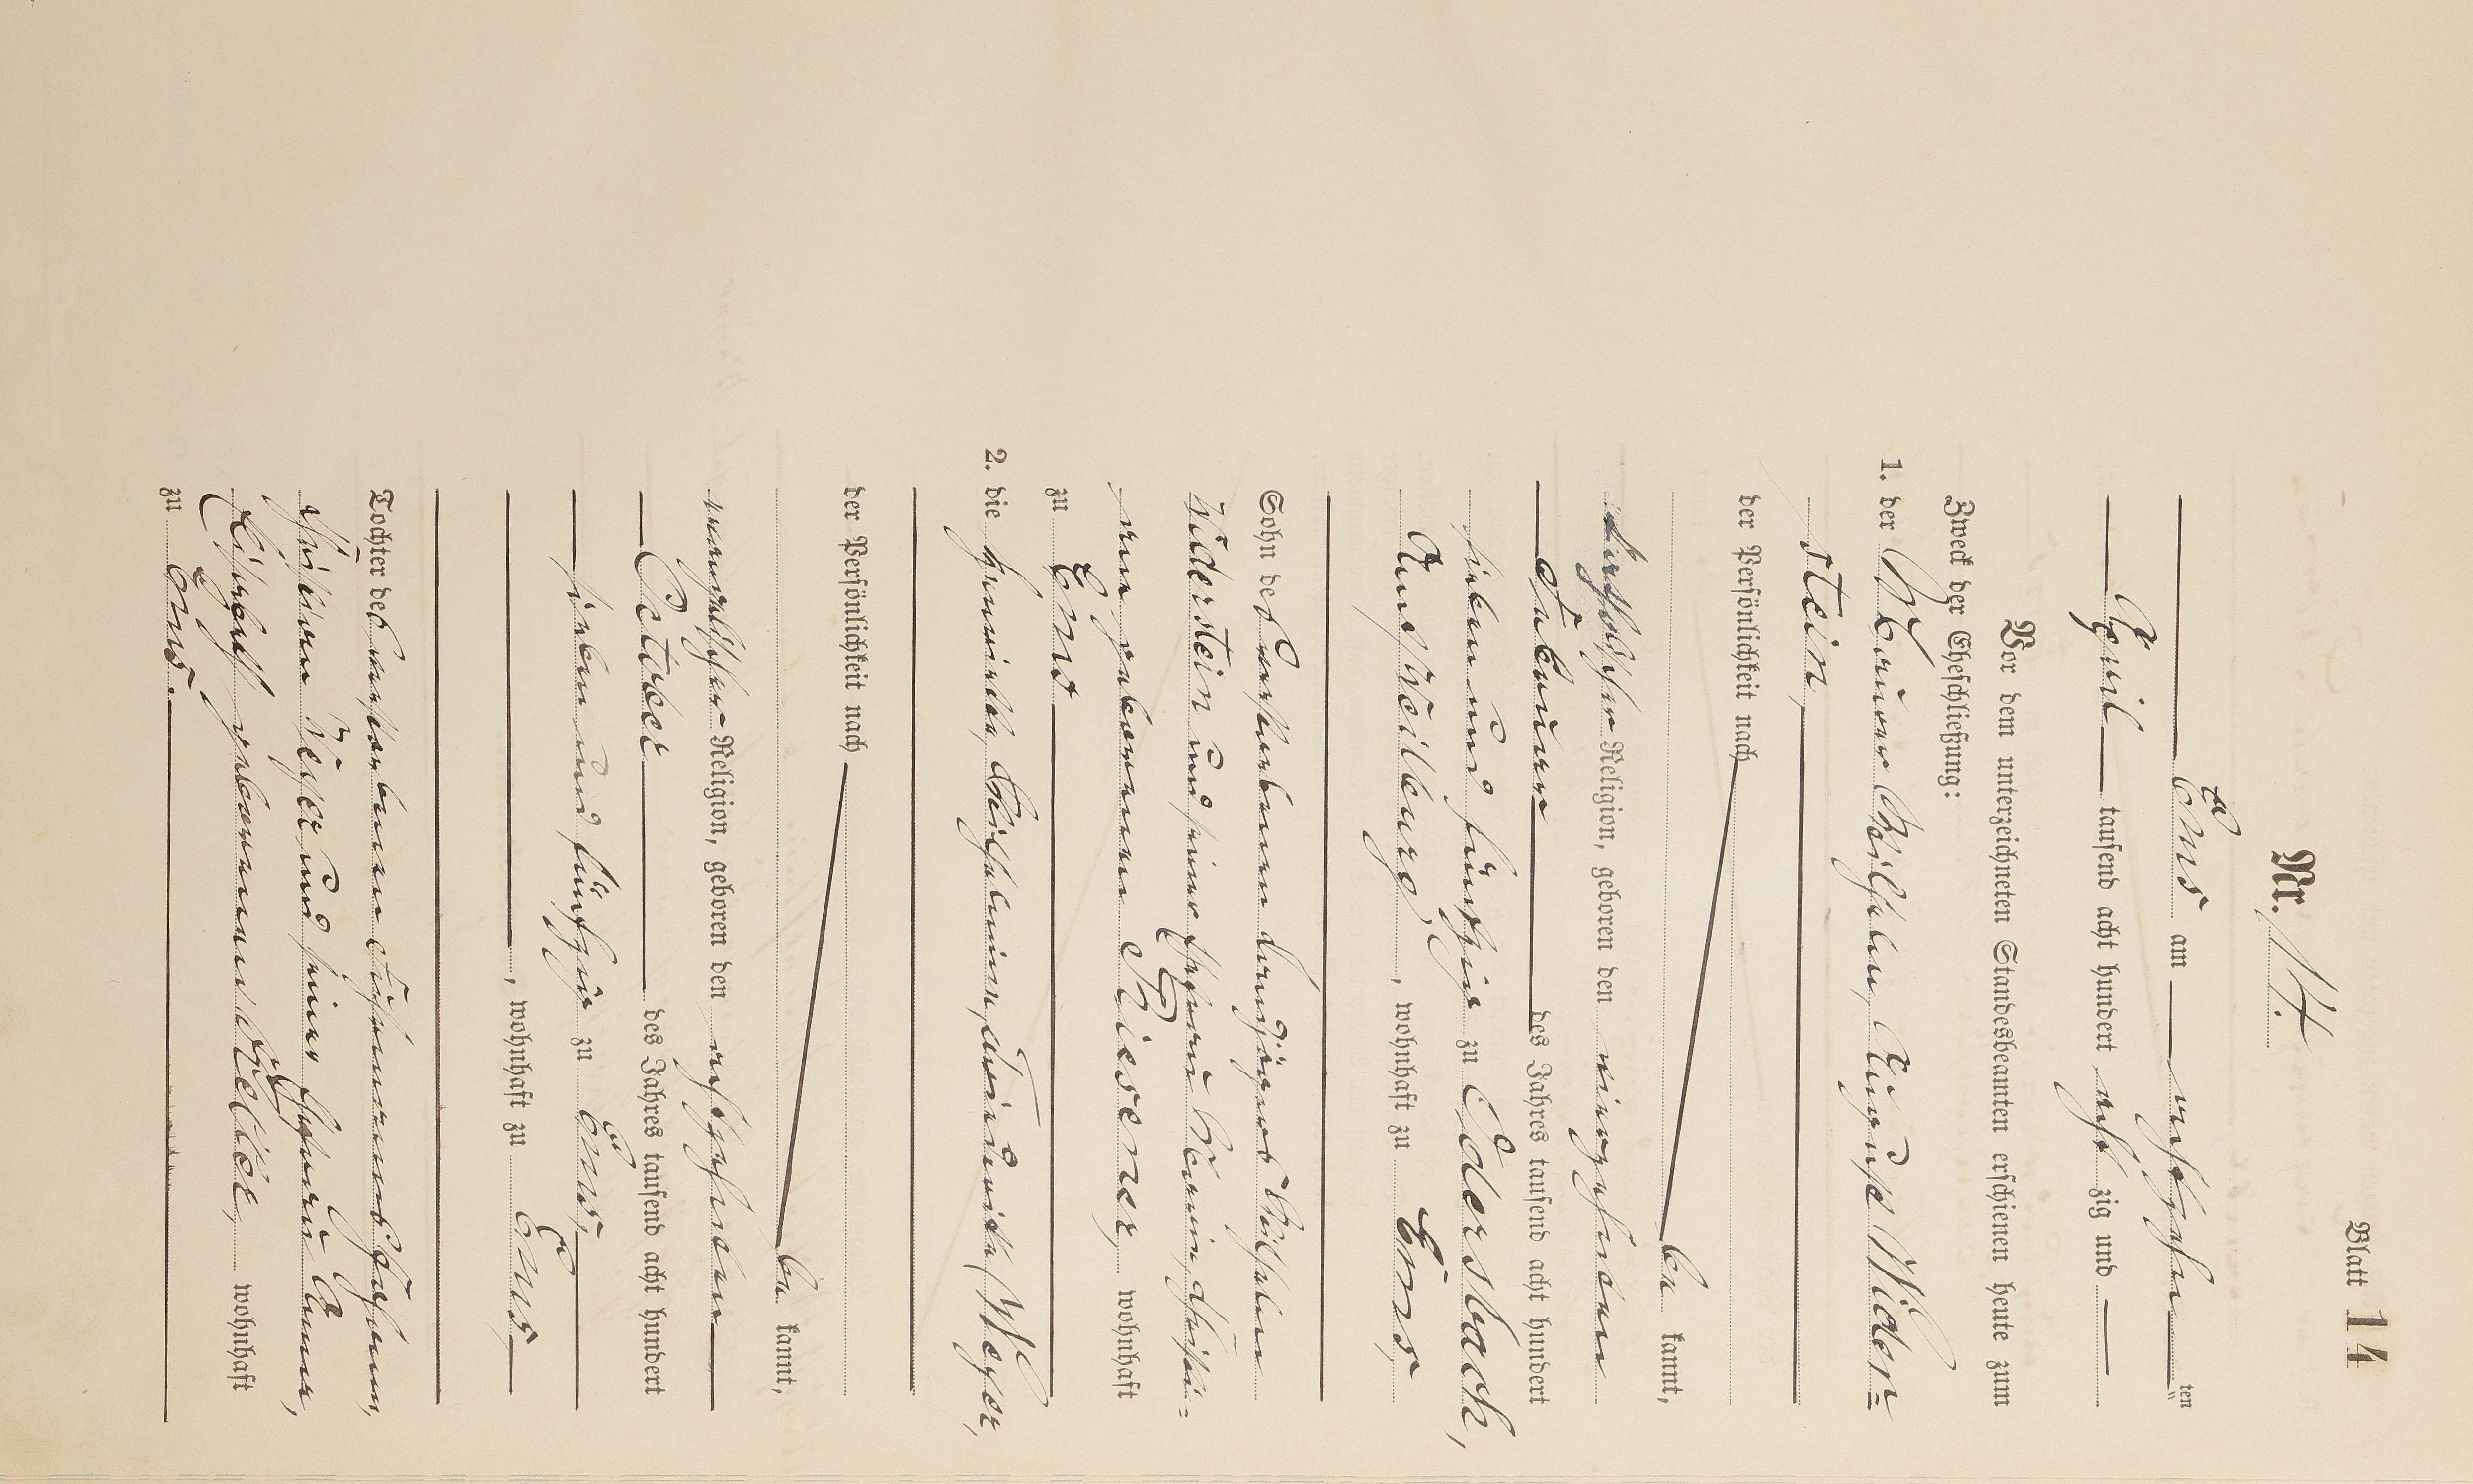 Blatt 14
Nr. 14.
Ems am achtzehn ten
April tausend acht hundert acht zig und
Vor dem unterzeichneten Standesbeamten erschienen heute zum
Zweck der Eheschließung:
1. der Wilhelm, August Wider=
stein,
der Persönlichkeit nach
be kannt,
katholischer Religion, geboren den vierzehnten
Februar des Jahres tausend acht hundert
sieben und fünfzig zu Edersbach,
Amt Weilburg, wohnhaft zu Ems,
Sohn des verstorbenen Wilhelm
Widerstein und seiner Ehefrau
geborenen wohnhaft
zu Ems
2. die Wilhelmine, Weyer,
der Persönlichkeit nach
be kannt,
evangelischer Religion, geboren den achtzehnten
October des Jahres tausend acht hundert
sieben und fünfzig zu Ems,
, wohnhaft zu Ems,
Tochter des verstorbenen Johann,
Weyer und seiner Ehefrau Anna,
Elisabeth geborenen wohnhaft
zu Ems.